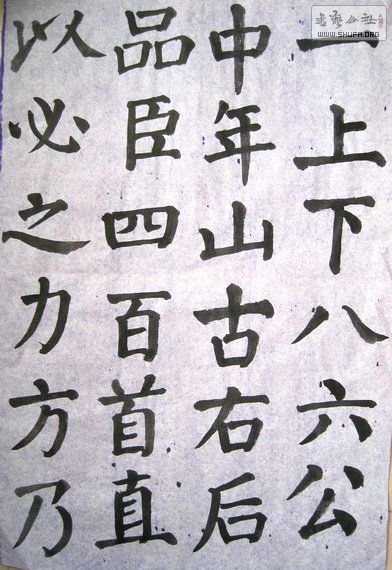 一上下八六公
中年山古右后
品臣四百首直
以必之力方乃
书法公社
WWW.SHUFA.ORG